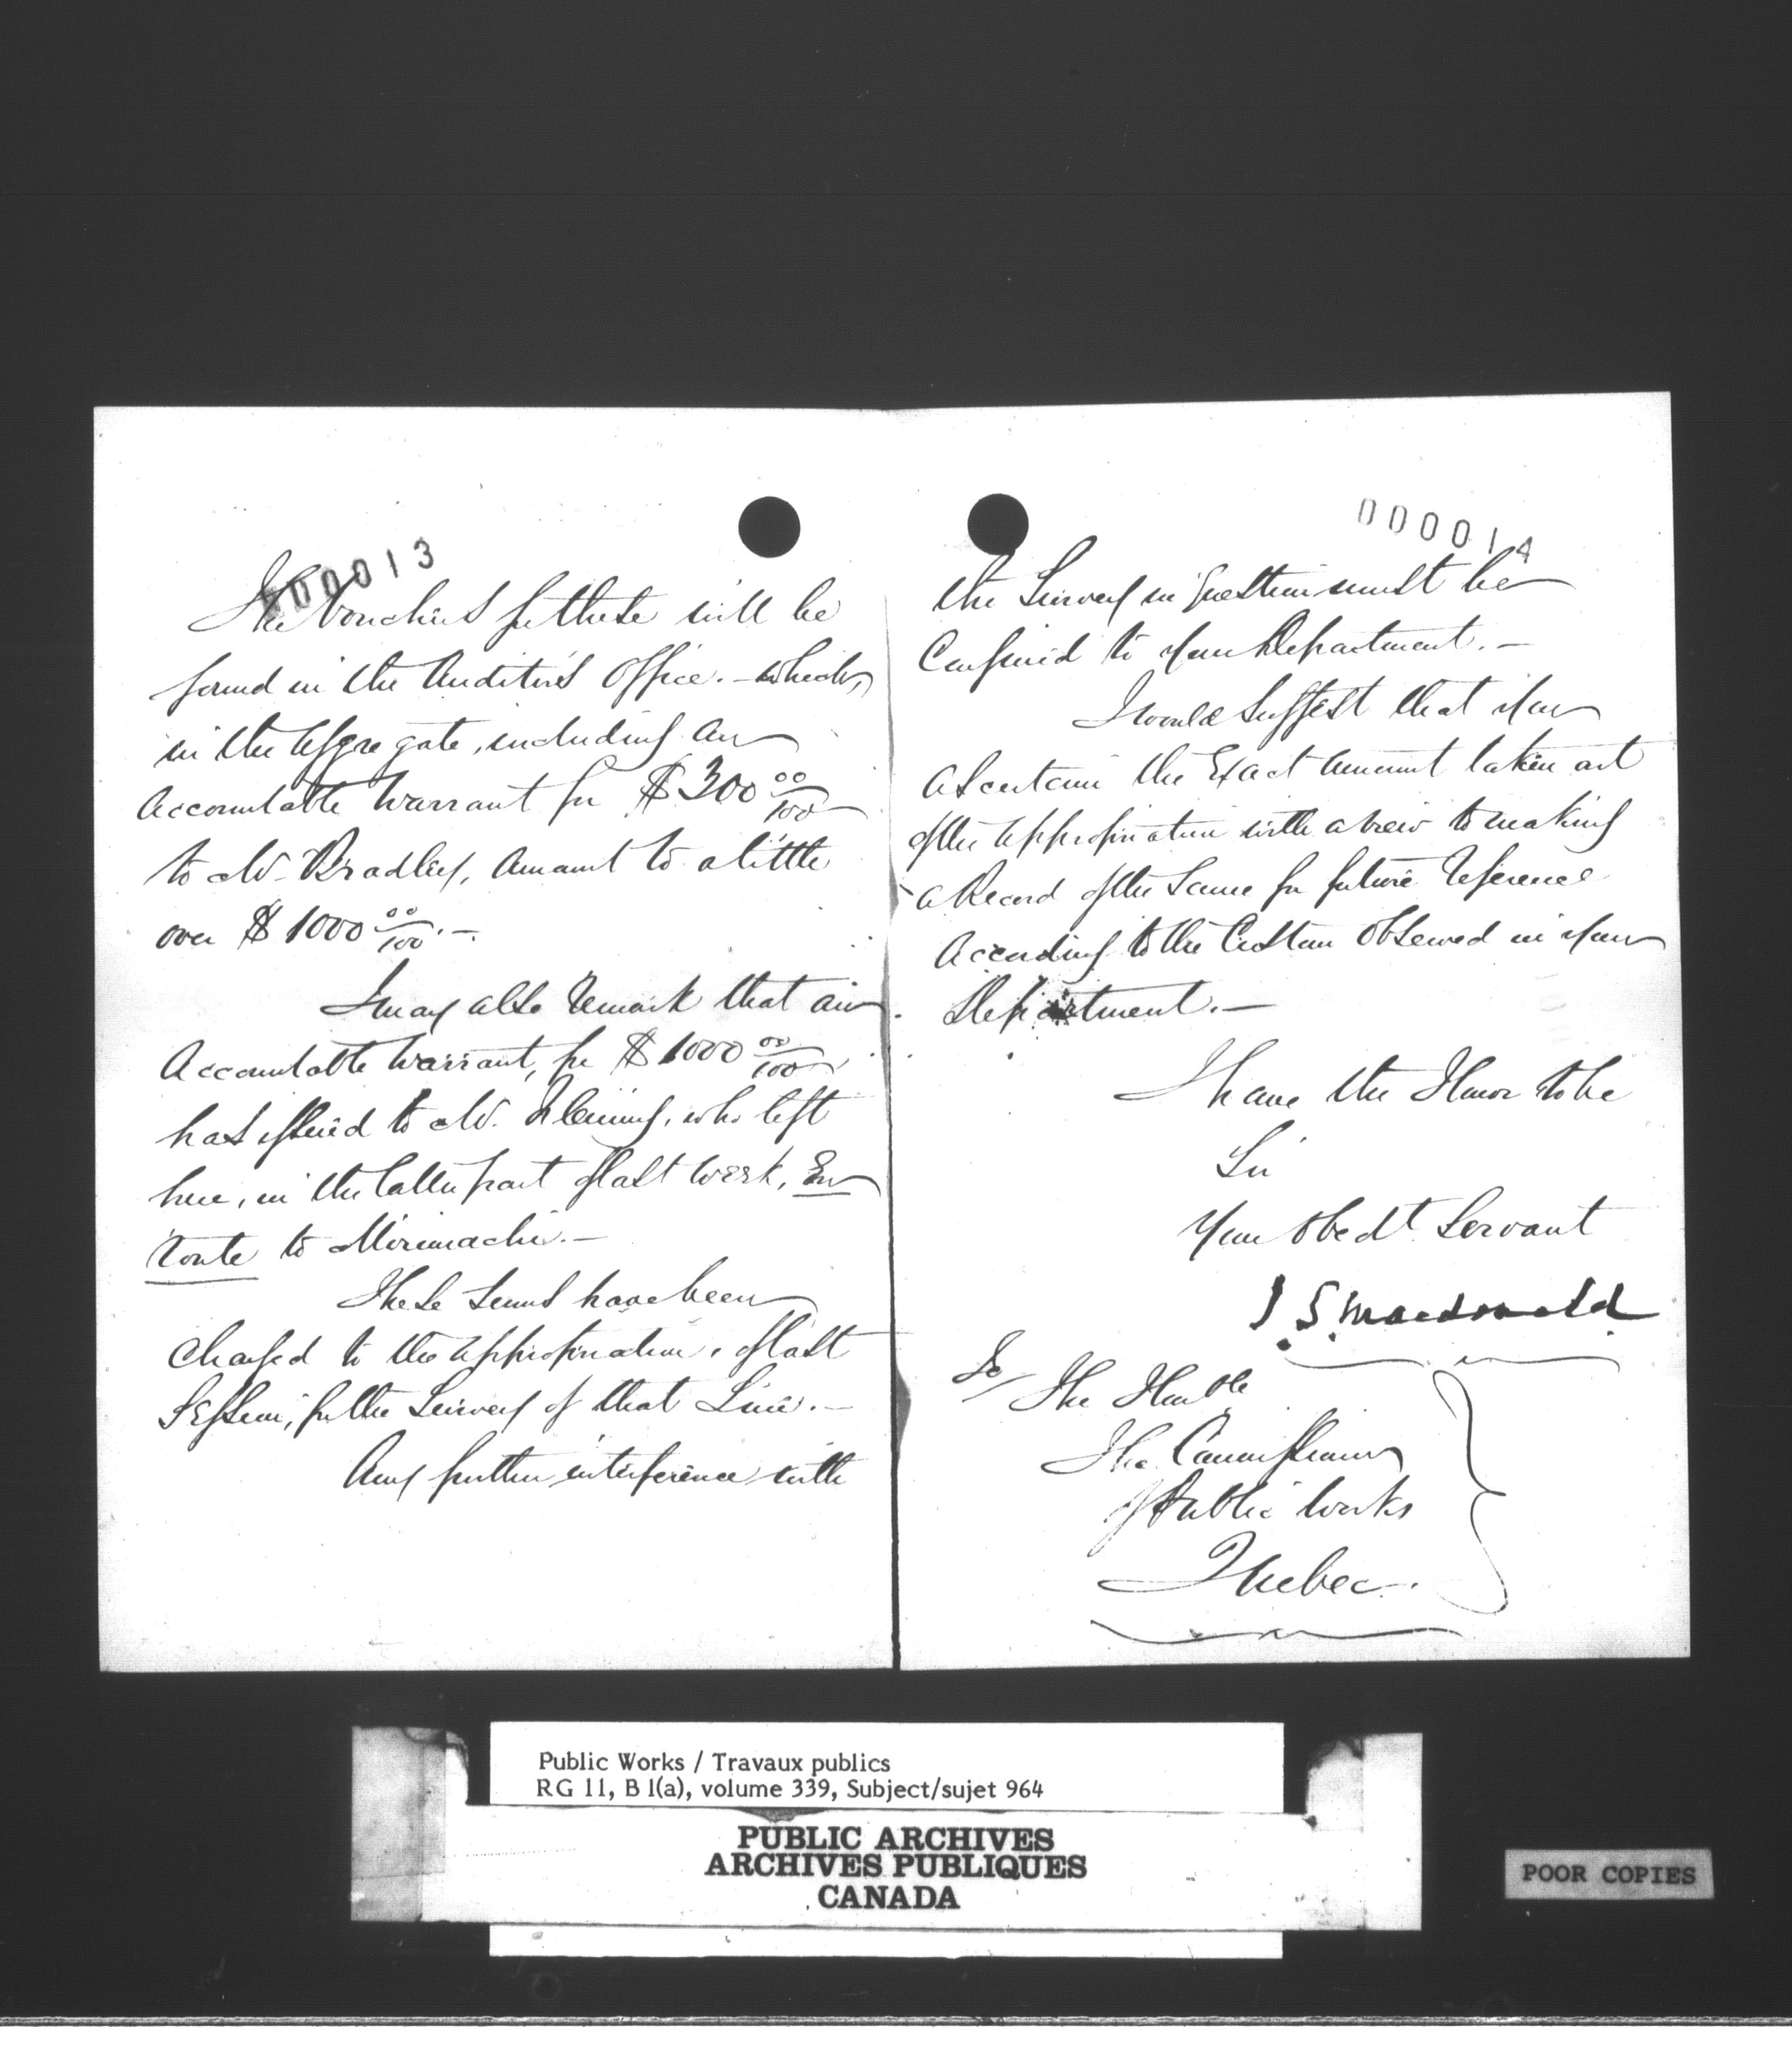 000013
The Vouchers for these will be
found in the Auditor's Office. – which,
in the Aggregate, including an
Accountable Warrant for $300 00/100
to Mr. Bradley, Amount to a little
over $1000 00/100. –
I may also Remark that an
Accountable Warrant, for $1000 00/100
has issued to Mr. Fleming, who left
here, in the latter part of last week, En
route to Mirimachi. –
These Sums have been
charged to the Appropriation, of last
Session, for the Survey of that Line. –
Any further interference with
000014
the Survey in Question must be
Confined to your Department. –
I would Suggest that you
Ascertain the Exact Amount taken out
of the Appropriation with a view to making
a Record of the Same for future Reference
According to the Custom Observed in your
Department. –
I have the Honor to be
Sir
Your Obedt Servant
J. S. Macdonald
To/ The Honble
The Commissioner
of Public Works
Quebec.
Public Works / Travaux publics
RG 11, B 1(a), volume 339, Subject/sujet 964
PUBLIC ARCHIVES
ARCHIVES PUBLIQUES
CANADA
POOR COPIES